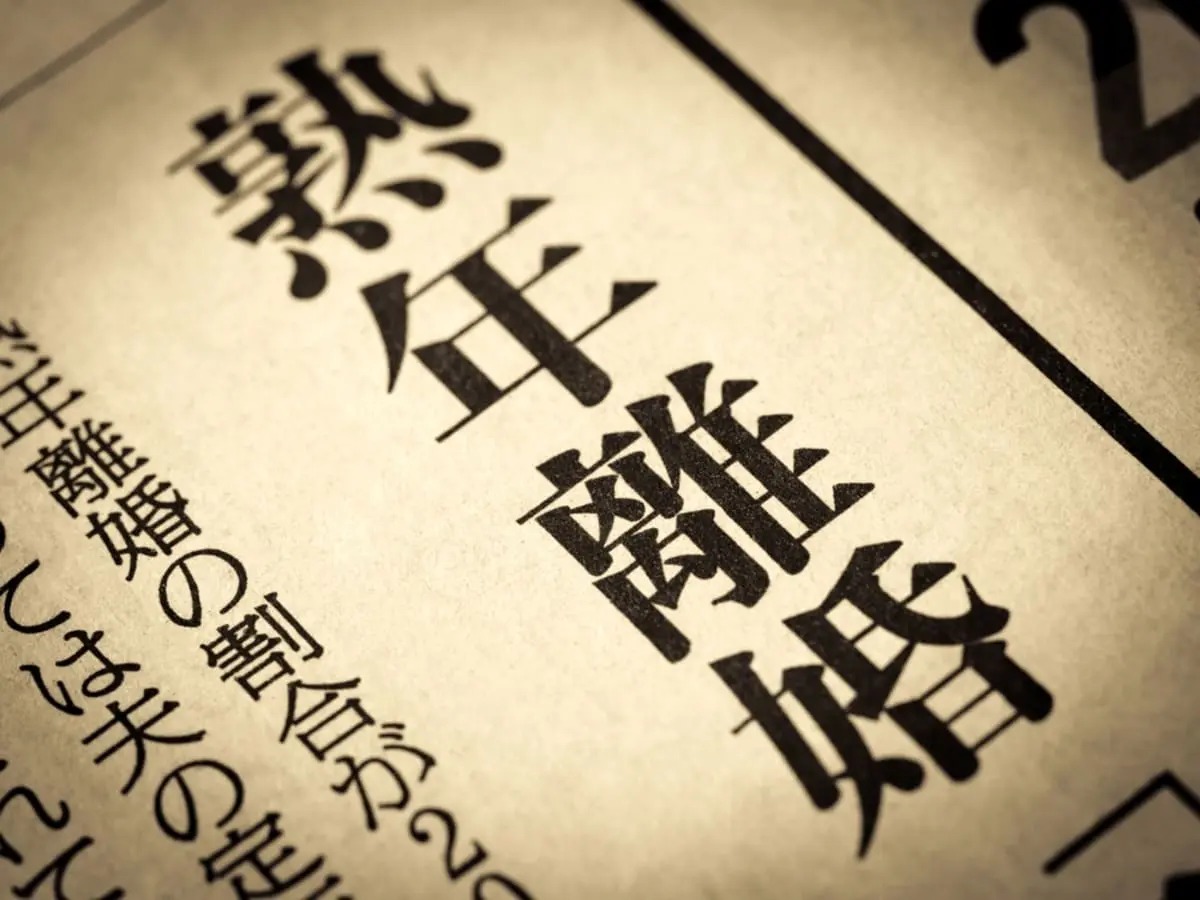 熟年離婚
年離婚の割合が2
ては夫の定
れて